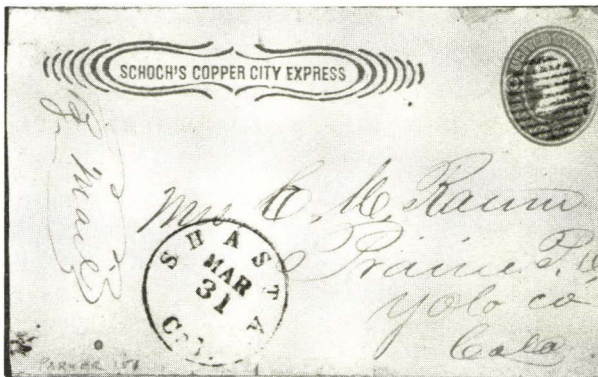 SCHOCH'S COPPER CITY EXPRESS
Mrs C. M. Raum
Prairie P.O.
Yolo co
Cala
SHASTA
MAR
31
PARKER 151